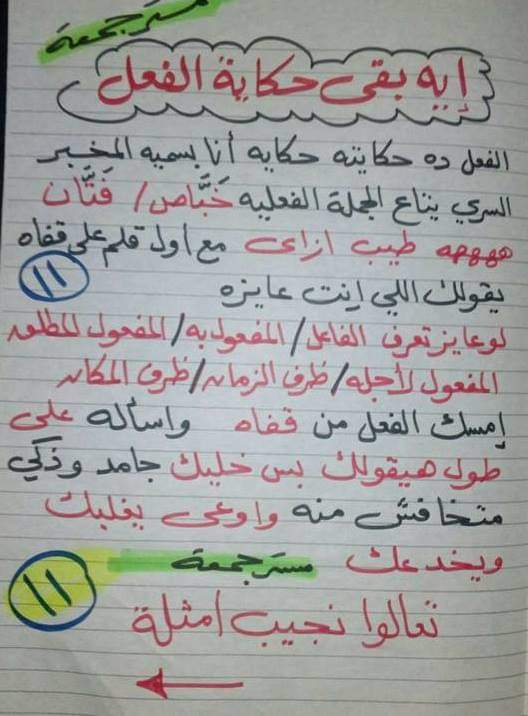 مستر جمعة
إيه بقى حكاية الفعل
الفعل ده حكايته حكايه أنا بسميه المخبر
السري بتاع الجملة الفعليه خَبَّاص/ فَتَّان
هههههه طيب ازاى مع أول قلم على قفاه
يقولك اللي إنت عايزه
١١
لوعايز تعرف الفاعل/ المفعول به/ المفعول المطلق
المفعول لأجله/ ظرف الزمان/ ظرف المكان
إمسك الفعل من قفاه واسأله على
طول هيقولك بس خليك جامد وذكي
متخافش منه واوعى يغلبك
ويخدعك مستر جمعة
١١
تعالوا نجيب أمثلة